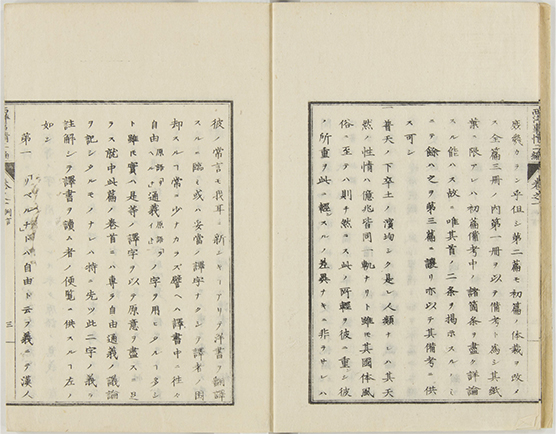 西洋事情二編 巻之一
庶幾カラン乎但シ第二篇モ初篇ノ体裁ヲ改メ
ス全篇三冊ノ内第一冊ヲ以テ備考ト為シ其紙
葉ニ限アレハ初篇備考中ノ諸箇条盡ク詳論
スル能ハス故ニ唯其首ノ二条ヲ掲示スルノミ
餘ハ之ヲ第三篇ニ讓リ亦以テ其備考ニ供
ス可シ
普天ノ下率土ノ濱均シク是レ人類ナレハ其天
然ノ性情ハ億兆皆同一軌ナリト雖モ其國体風
俗ニ至テハ則チ然ラス此ニ所輕ヲ彼ニ重シ彼
ノ所重ヲ此ニ輕スル等ノ差異ナキニ非ラサレハ
彼ノ常言モ我耳ニ新シキヿアリテ洋書ヲ翻譯
スルニ臨ミ或ハ妥當ノ譯字ナクシテ譯者ノ困
却スルヿ常ニ少ナカラス譬ヘハ譯書中ニ往々
自由 原語 通義 原語 ノ字ヲ用ヒタルヿ多シ
ト雖モ實ハ是等ノ譯字ヲ以テ原意ヲ盡スニ足
ラス就中此篇ノ巻首ニハ專ラ自由通義ノ議論
ヲ記シタルモノナレハ特ニ先ツ此二字ノ義ヲ
註解シテ譯書ヲ讀ム者ノ便覧ニ供スルヿ左ノ
如シ
第一 リベルチトハ自由ト云フ義ニテ漢人
三